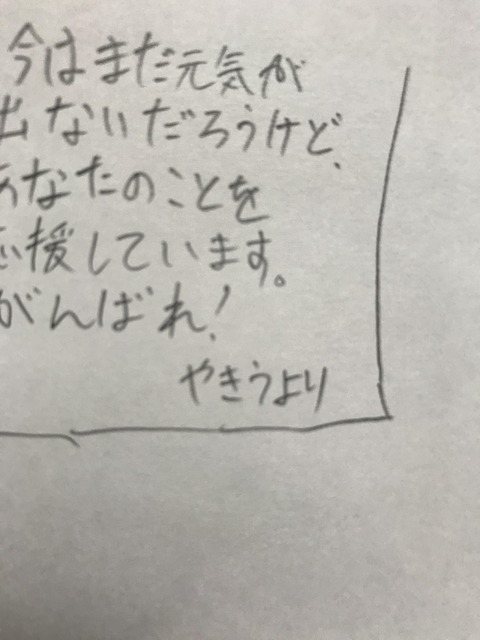 今はまだ元気が
出ないだろうけど、
あなたのことを
応援しています。
がんばれ!
やきうより